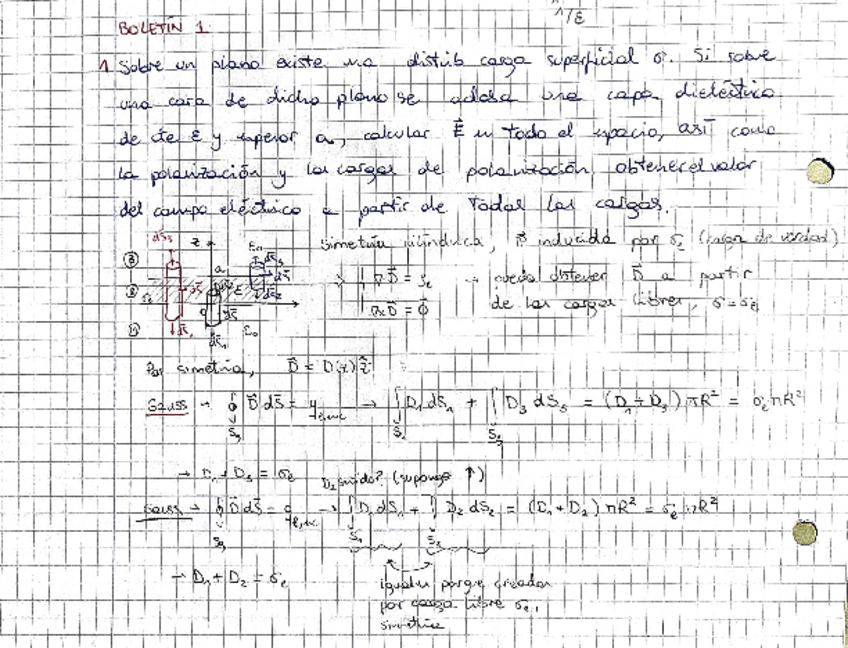 1/ε
BOLETÍN 1
1 Sobre un plano existe una distrib carga superficial σ. Si sobre
una cara de dicho plano se adosa una capa dieléctrica
de cte ε y espesor a, calcular E⃗ en todo el espacio, así como
la polarización y las cargas de polarización, obtener el valor
del campo eléctrico a partir de todas las cargas.
simetría cilíndrica, D⃗ inducida por
∇·D⃗ = → puedo obtener D⃗ a partir
∇×D⃗ = 0⃗ de las cargas libres,
Por simetría, D⃗ = D(z) ẑ
Gauss → ∮ D⃗ dS⃗ = q → ∫ D₁ dS₁ + ∫ D₃ dS₃ = (D₁ + D₃) πR² = σₑ πR²
→ D₁ + D₃ = σₑ (supongo ↑)
Gauss → ∮ D⃗ dS⃗ = q → ∫ D₁ dS₁ + ∫ D₂ dS₂ = (D₁ + D₂) πR² = σₑ πR²
→ D₁ + D₂ = σₑ
iguales porque creados
por carga libre σₑ,
simetría